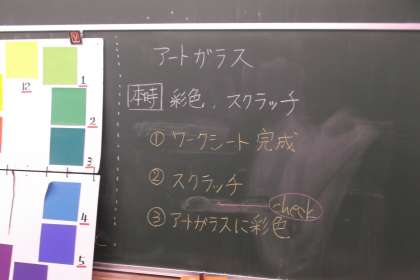 アートガラス
本時 彩色、スクラッチ
① ワークシート完成
② スクラッチ
check
③ アートガラスに彩色
12
1
2
3
4
5